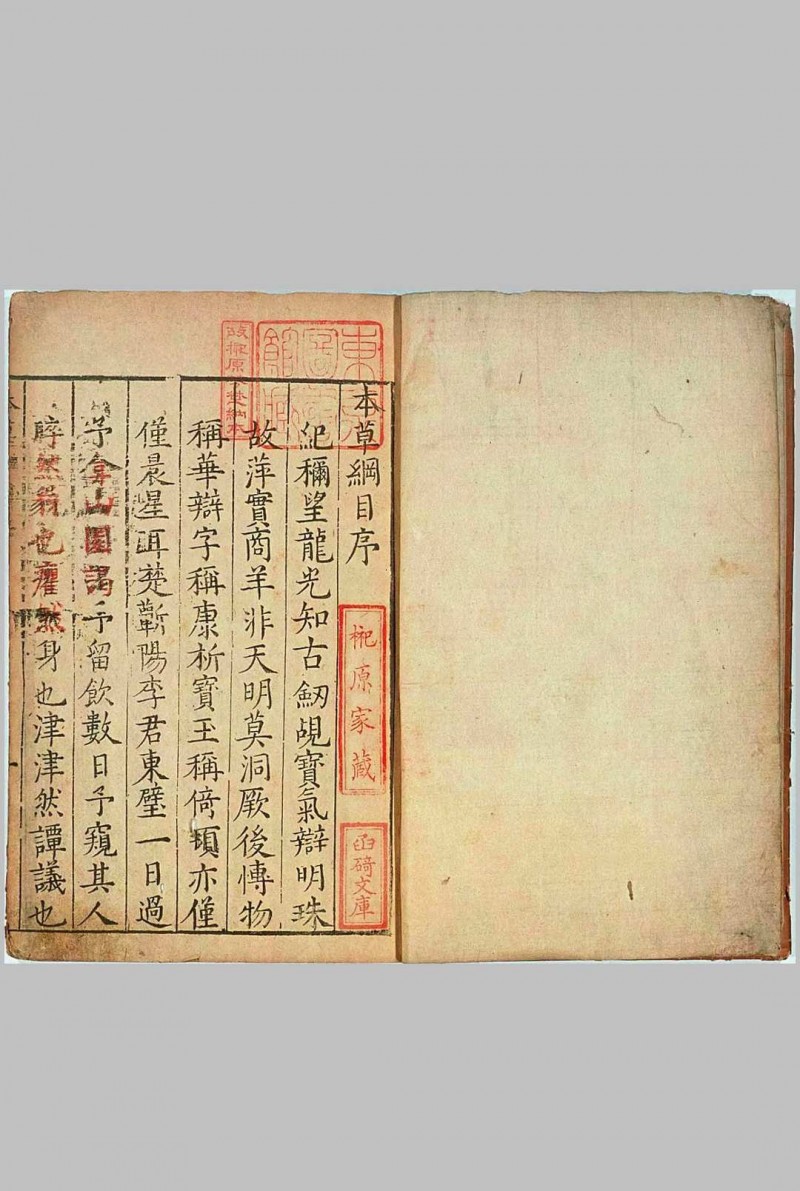 本草綱目序
紀稱望龍光知古劒覘寶氣辯明珠
故萍實商羊非天明莫洞厥後愽物
稱華辯字稱康析寶玉稱倚頓亦僅
僅晨星耳楚蘄陽李君東璧一日過
予弇山園謁予留飲數日予窺其人
睟然貌也癯然身也津津然譚議也
柅原家藏
函碕文庫